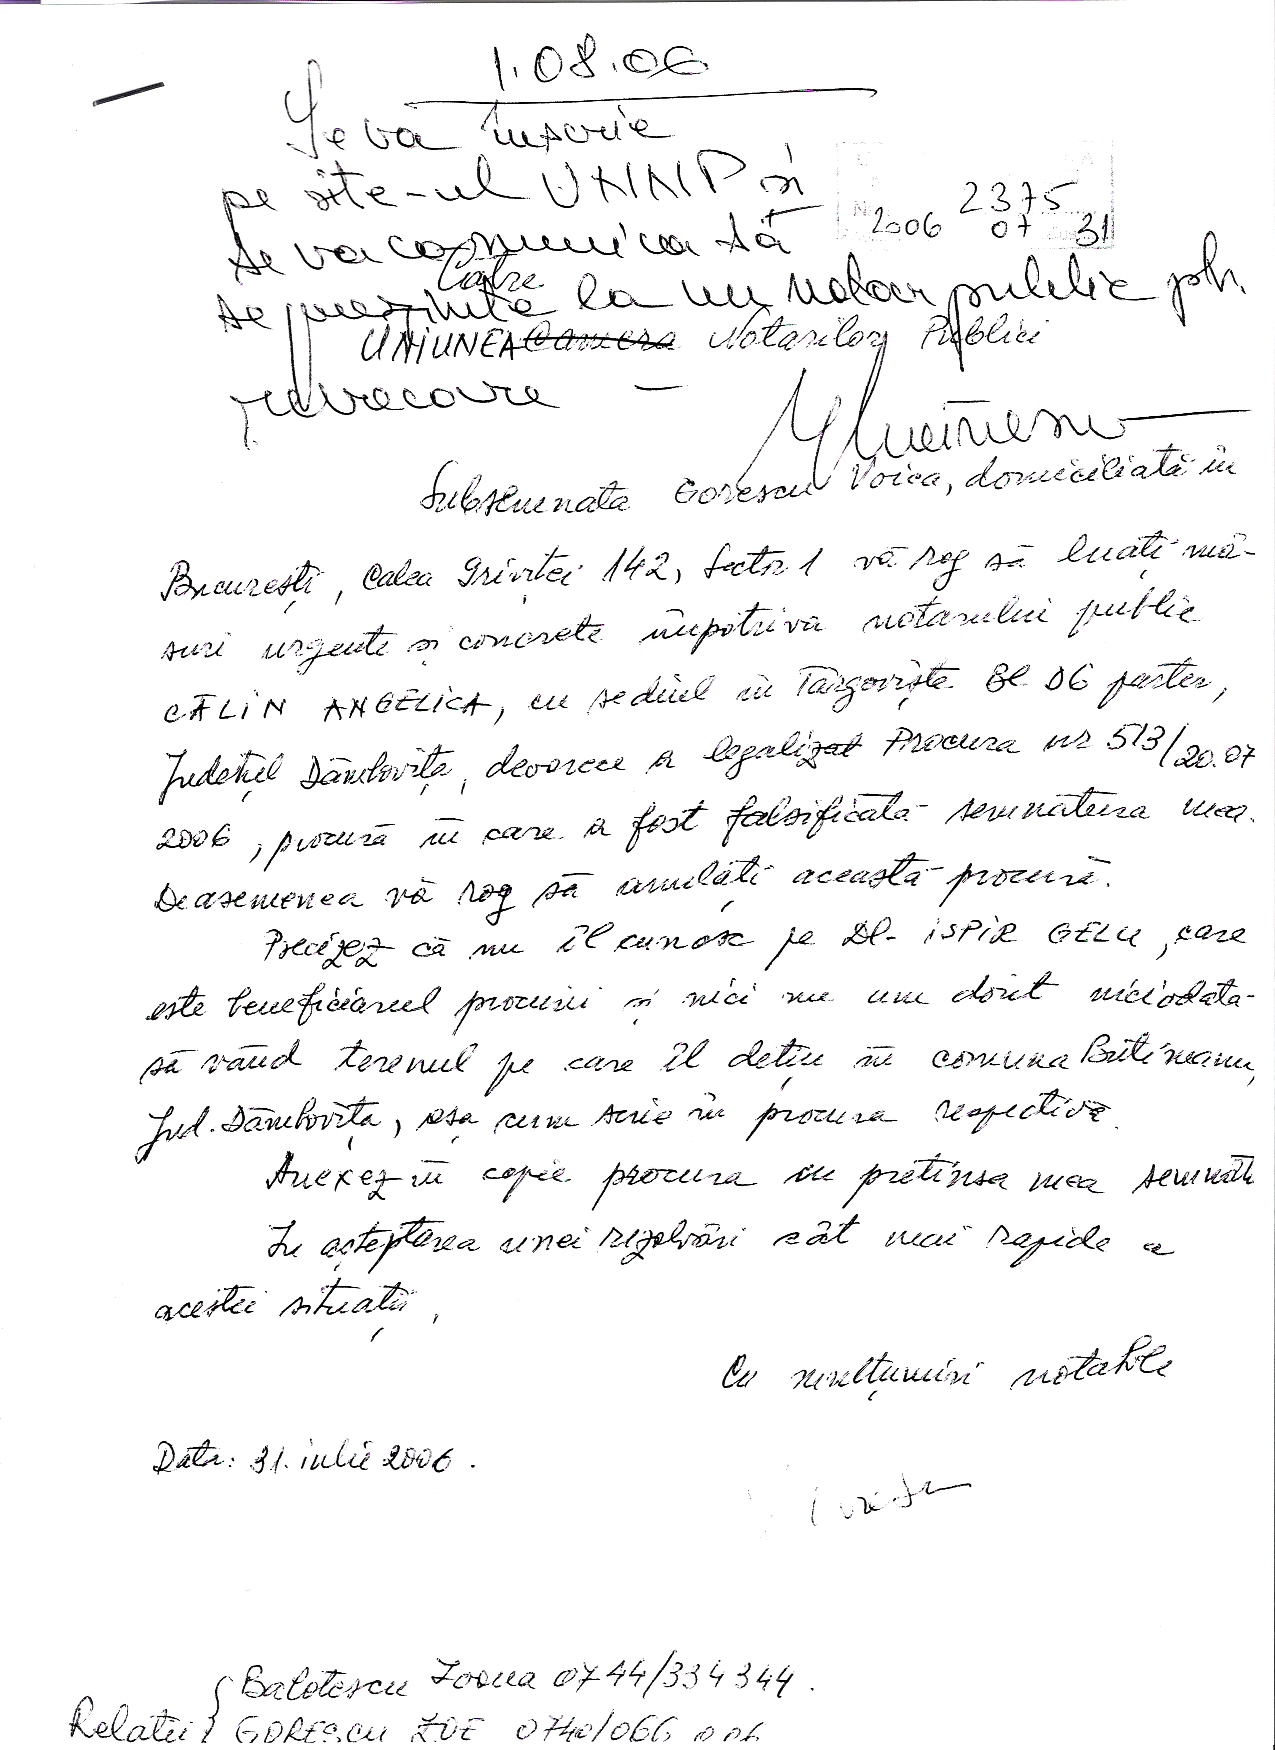 1.08.06
Se va înscrie
pe site-ul UNNP și
se va comunica să
2375
2006 07 31
Către
se prezinte la un notar public ptr.
UNIUNEA Camera Notarilor Publici
revocare —
Subsemnata Gorescu Voica, domiciliată în
București, Calea Griviței 142, Sector 1 vă rog să luați mă-
suri urgente și concrete împotriva notarului public
CĂLIN ANGELICA, cu sediul în Târgoviște Bl D6 parter,
Județul Dâmbovița, deoarece a legalizat Procura nr 513/20.07
2006, procură în care a fost falsificată semnătura mea.
Deasemenea vă rog să anulați această procură.
Precizez că nu îl cunosc pe Dl. ISPIR GELU, care
este beneficiarul procurii și nici nu am dorit niciodată
să vând terenul pe care îl dețin în comuna
Jud. Dâmbovița, așa cum scrie în procura respectivă.
Anexez în copie procura cu pretinsa mea semnăt
În așteptarea unei rezolvări cât mai rapide a
acestei situații,
Cu mulțumiri notabile
Data: 31. iulie 2006.
Balotescu 0744/334344.
Relații GORESCU ZOE 0740/066